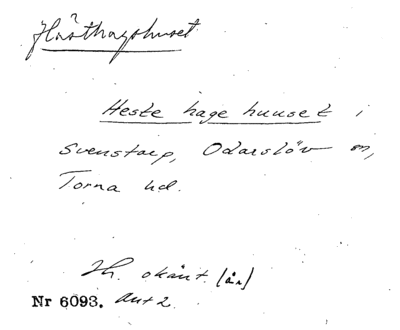 Hästhagshuset
Heste hage huuset i
Svenstorp, Odarslöv sn,
Torna hd.
Th. okänt. (år)
Nr 6093. Ant 2.